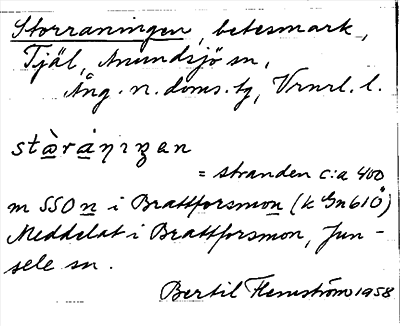 Storraningen, betesmark,
Tjäl, Anundsjö sn,
Ång. n. doms. tg, Vrnrl. l.
= stranden c:a 400
m SSO n i Brattforsmon (k Gn 61Ö)
Meddelat i Brattforsmon, Jun-
sele sn.
Bertil Flemström 1958